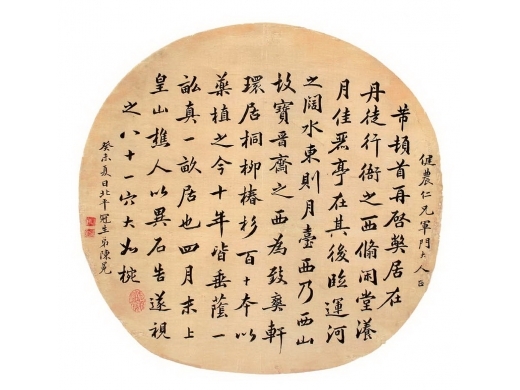 健農仁兄軍門大人正
芾頓首再啓獘居在
丹徒行衙之西翛閑堂漾
月佳麗亭在其後臨運河
之闊水東則月臺西乃西山
故寶晉齋之西為致爽軒
環居桐柳椿杉百十本以
藥植之今十年皆垂蔭一
畝真一畝居也四月末上
皇山樵人以異石告遂視
之八十一穴大如椀
癸未夏日北平冠生弟陳冕